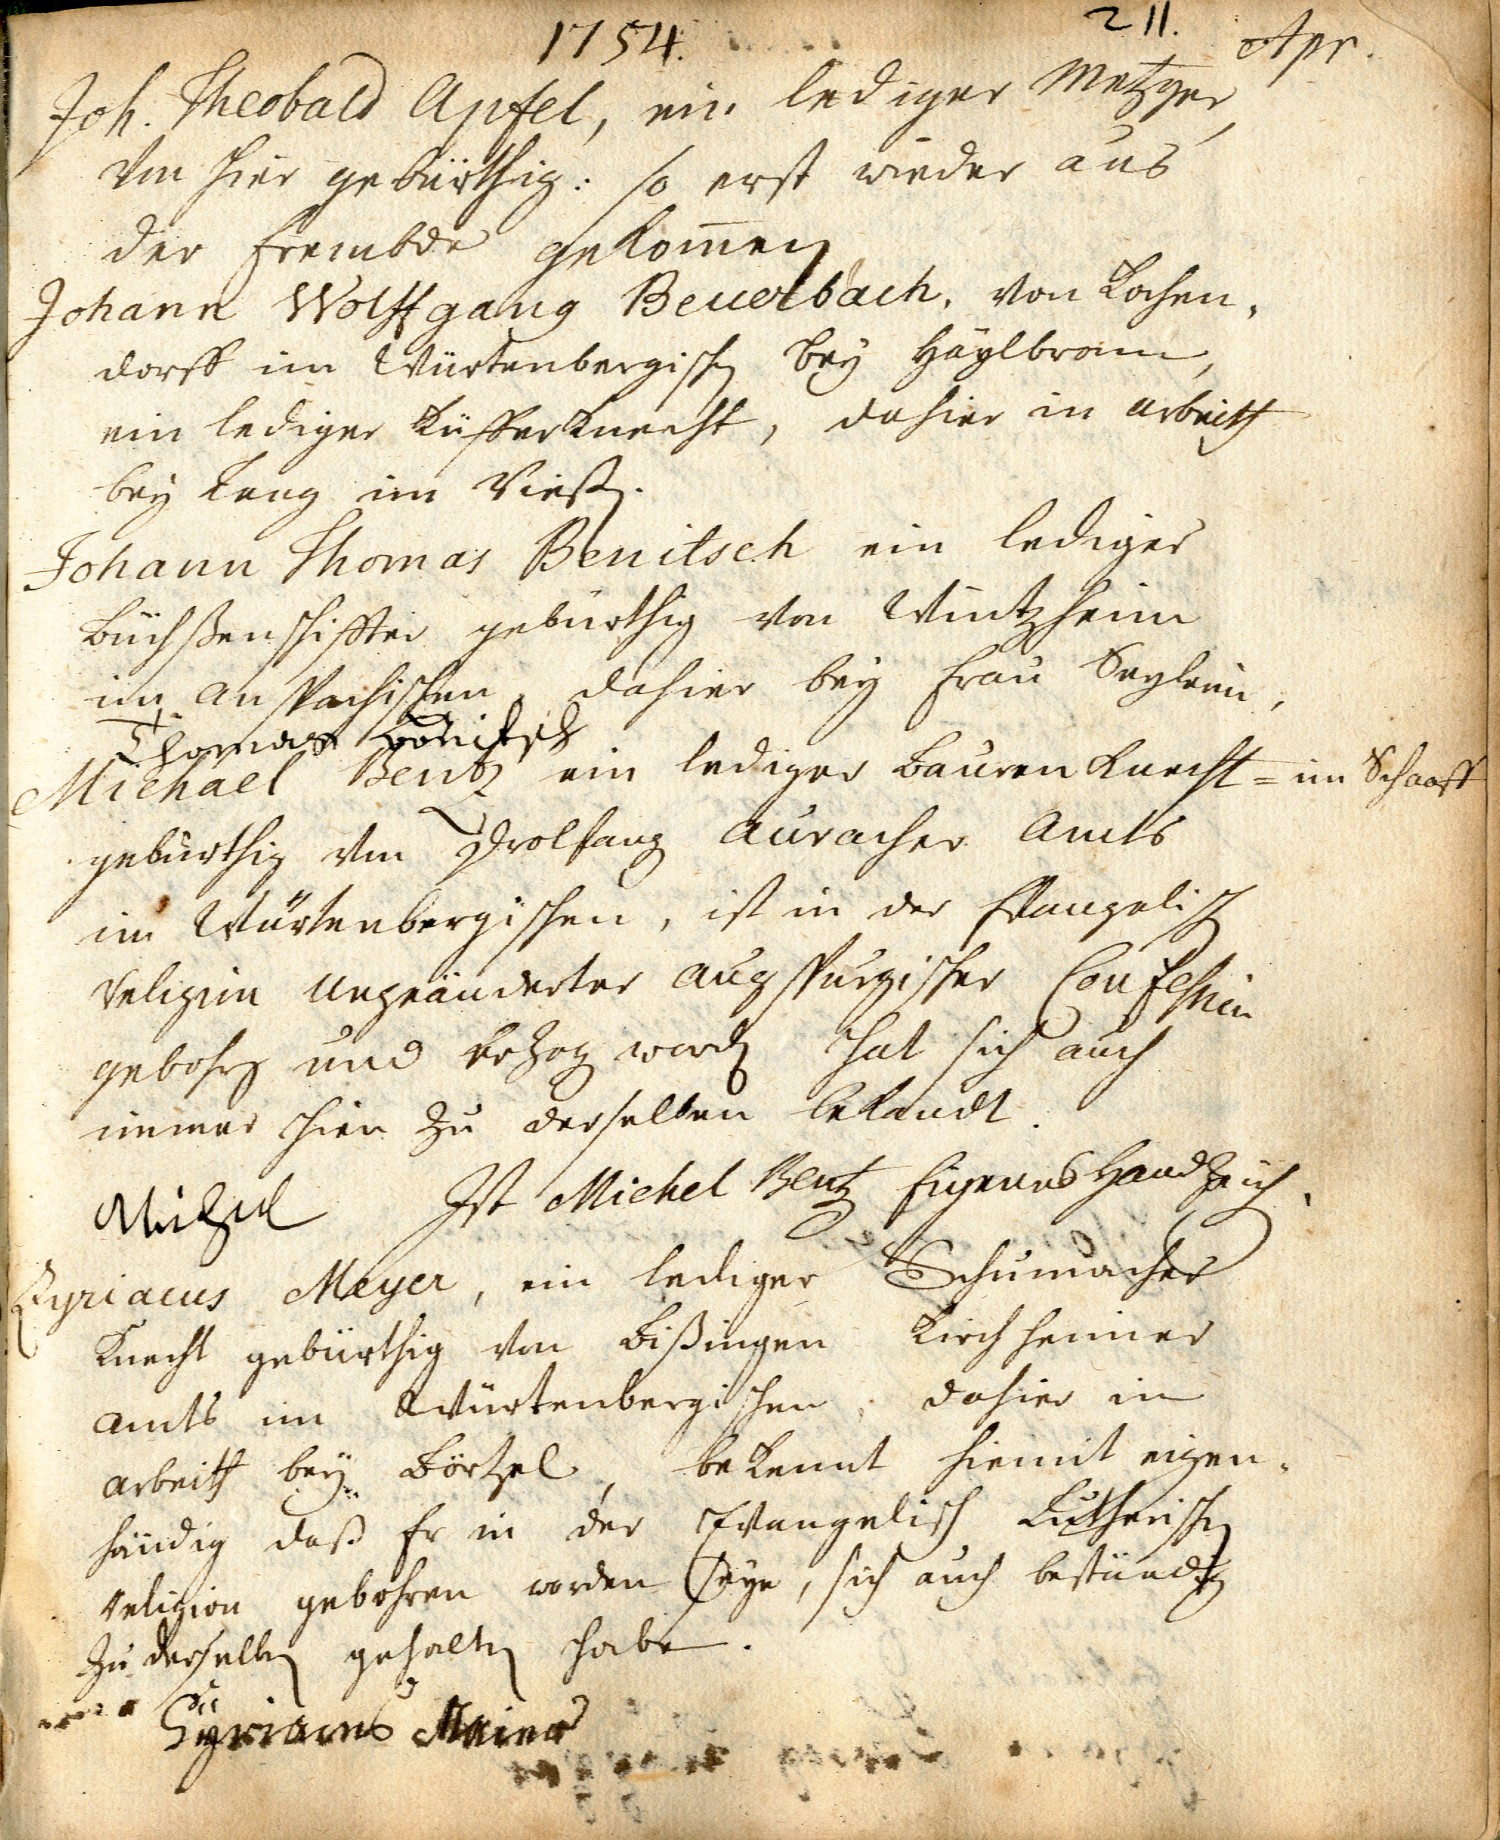 1754.
211.
Apr.
Joh. Theobald Apfel, ein lediger Metzger,
von hier gebürthig: so erst wieder aus
der frembde gekom̄en
Johann Wolffgang Beuerbach, von Kochen,
dorff im Würtenbergisch bey Häylbronn,
ein lediger Küfferknecht, dahier in arbeith
bey Lang im
Johann Thomas Benitsch ein lediger
Büchßenschiffter gebürthig von Wintzheim
im Anspachischen, dahier bey Frau
Thomas Bönitsch
Michael Bentz ein lediger Bauren Knecht = im Schaaff
gebürthig von Auracher Amts
im Würtenbergischen, ist in der Evangelisch
religion ungeänderter Augspurgischer Confession
gebohrn und erzog word hat sich auch
immer hier zu derselben bekandt.
Michel Ist Michel Bentz Eigenes Handzeich.
Cyriacus Meyer, ein lediger Schumacher
Knecht gebürthig von Bißingen Kirchheimer
Amts im Würtenbergischen, dahier in
arbeith bey Börtzel, bekennt hiemit eigen,
händig daß Er in der Evangelisch Lutherisch
religion gebohren worden seye, sich auch beständig
zu derselben gehalten habe.
Cyriacus Maier